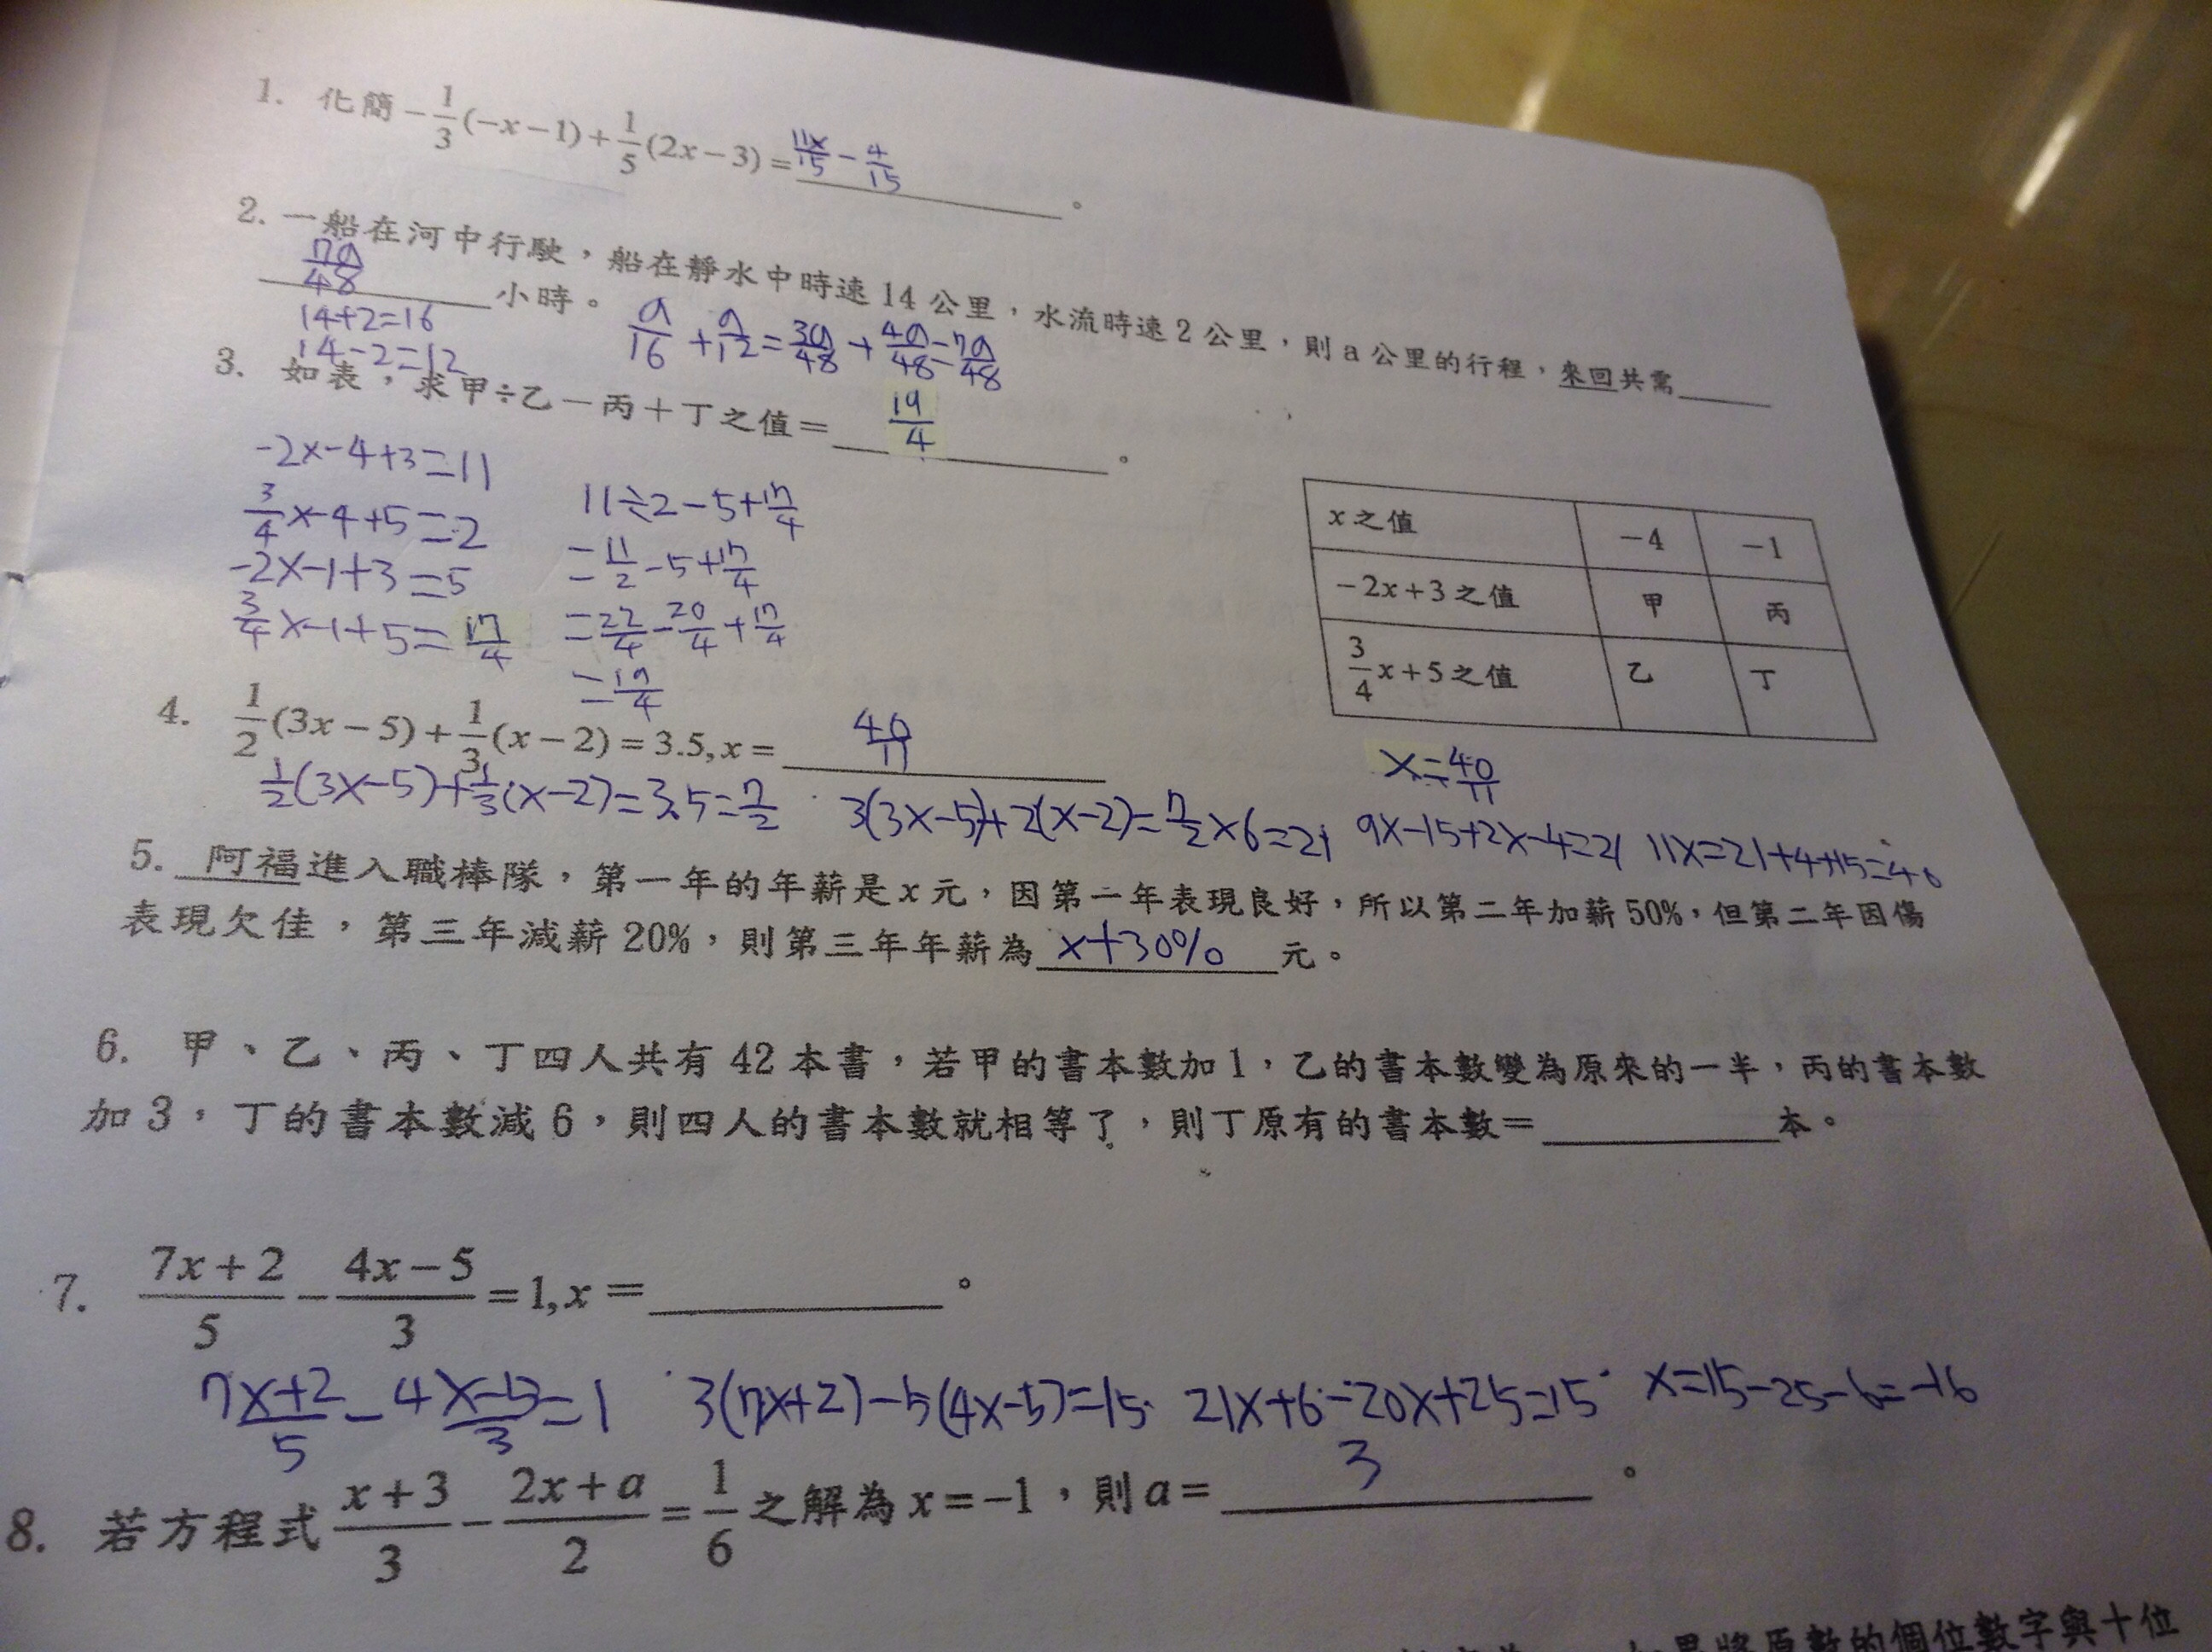 1. 化簡 -1/3(-x-1)+1/5(2x-3)= 11x/15 - 4/15 。
2. 一船在河中行駛，船在靜水中時速14公里，水流時速2公里，則a公里的行程，來回共需
7a/48 小時。
14+2=16
14-2=12
a/16 + a/12 = 3a/48 + 4a/48 = 7a/48
3. 如表，求甲÷乙－丙＋丁之值＝ 19/4 。
-2x-4+3=11
3/4x-4+5=2
-2x-1+3=5
3/4x-1+5=17/4
11÷2-5+17/4
=11/2-5+17/4
=22/4-20/4+17/4
=19/4
x之值 -4 -1
-2x+3之值 甲 丙
3/4x+5之值 乙 丁
4. 1/2(3x-5)+1/3(x-2)=3.5,x= 40/11
1/2(3x-5)+1/3(x-2)=3.5=7/2 3(3x-5)+2(x-2)=7/2×6=21 9x-15+2x-4=21 11x=21+4+15=40
x=40/11
5. 阿福進入職棒隊，第一年的年薪是x元，因第一年表現良好，所以第二年加薪50%，但第二年因傷
表現欠佳，第三年減薪20%，則第三年年薪為 x+30% 元。
6. 甲、乙、丙、丁四人共有42本書，若甲的書本數加1，乙的書本數變為原來的一半，丙的書本數
加3，丁的書本數減6，則四人的書本數就相等了，則丁原有的書本數＝ 本。
7. (7x+2)/5 - (4x-5)/3 =1,x＝ 。
7x+2/5 - 4x-5/3 =1 3(7x+2)-5(4x-5)=15 21x+6-20x+25=15 x=15-25-6=-16
8. 若方程式 (x+3)/3 - (2x+a)/2 = 1/6 之解為x=-1，則a= 3 。
數的個位數字與十位